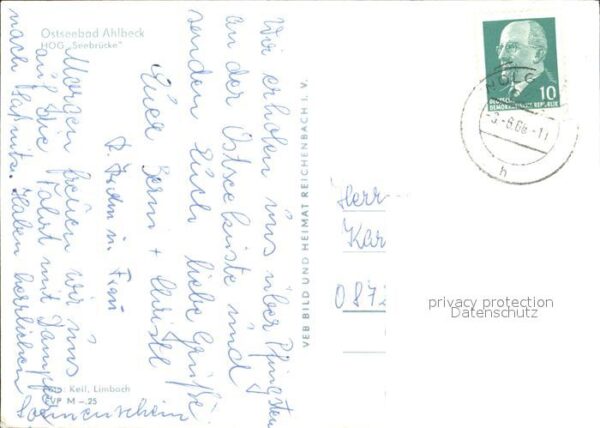 Ostseebad Ahlbeck
HOG „Seebrücke"
Wir erholen uns über Pfingsten
an der Ostseeküste und
senden Euch liebe Grüße.
Eure Berni + Christel
u. Frau
Morgen freuen wir uns
auf die Fahrt mit Dampfer
nach Saßnitz. Haben herrlichen
Sonnenschein
Keil, Limbach
M -.25
VEB BILD UND HEIMAT REICHENBACH I. V.
10
DEUTSCHE
DEMOKRATISCHE REPUBLIK
h
Herr
Kar
0872
privacy protection
Datenschutz